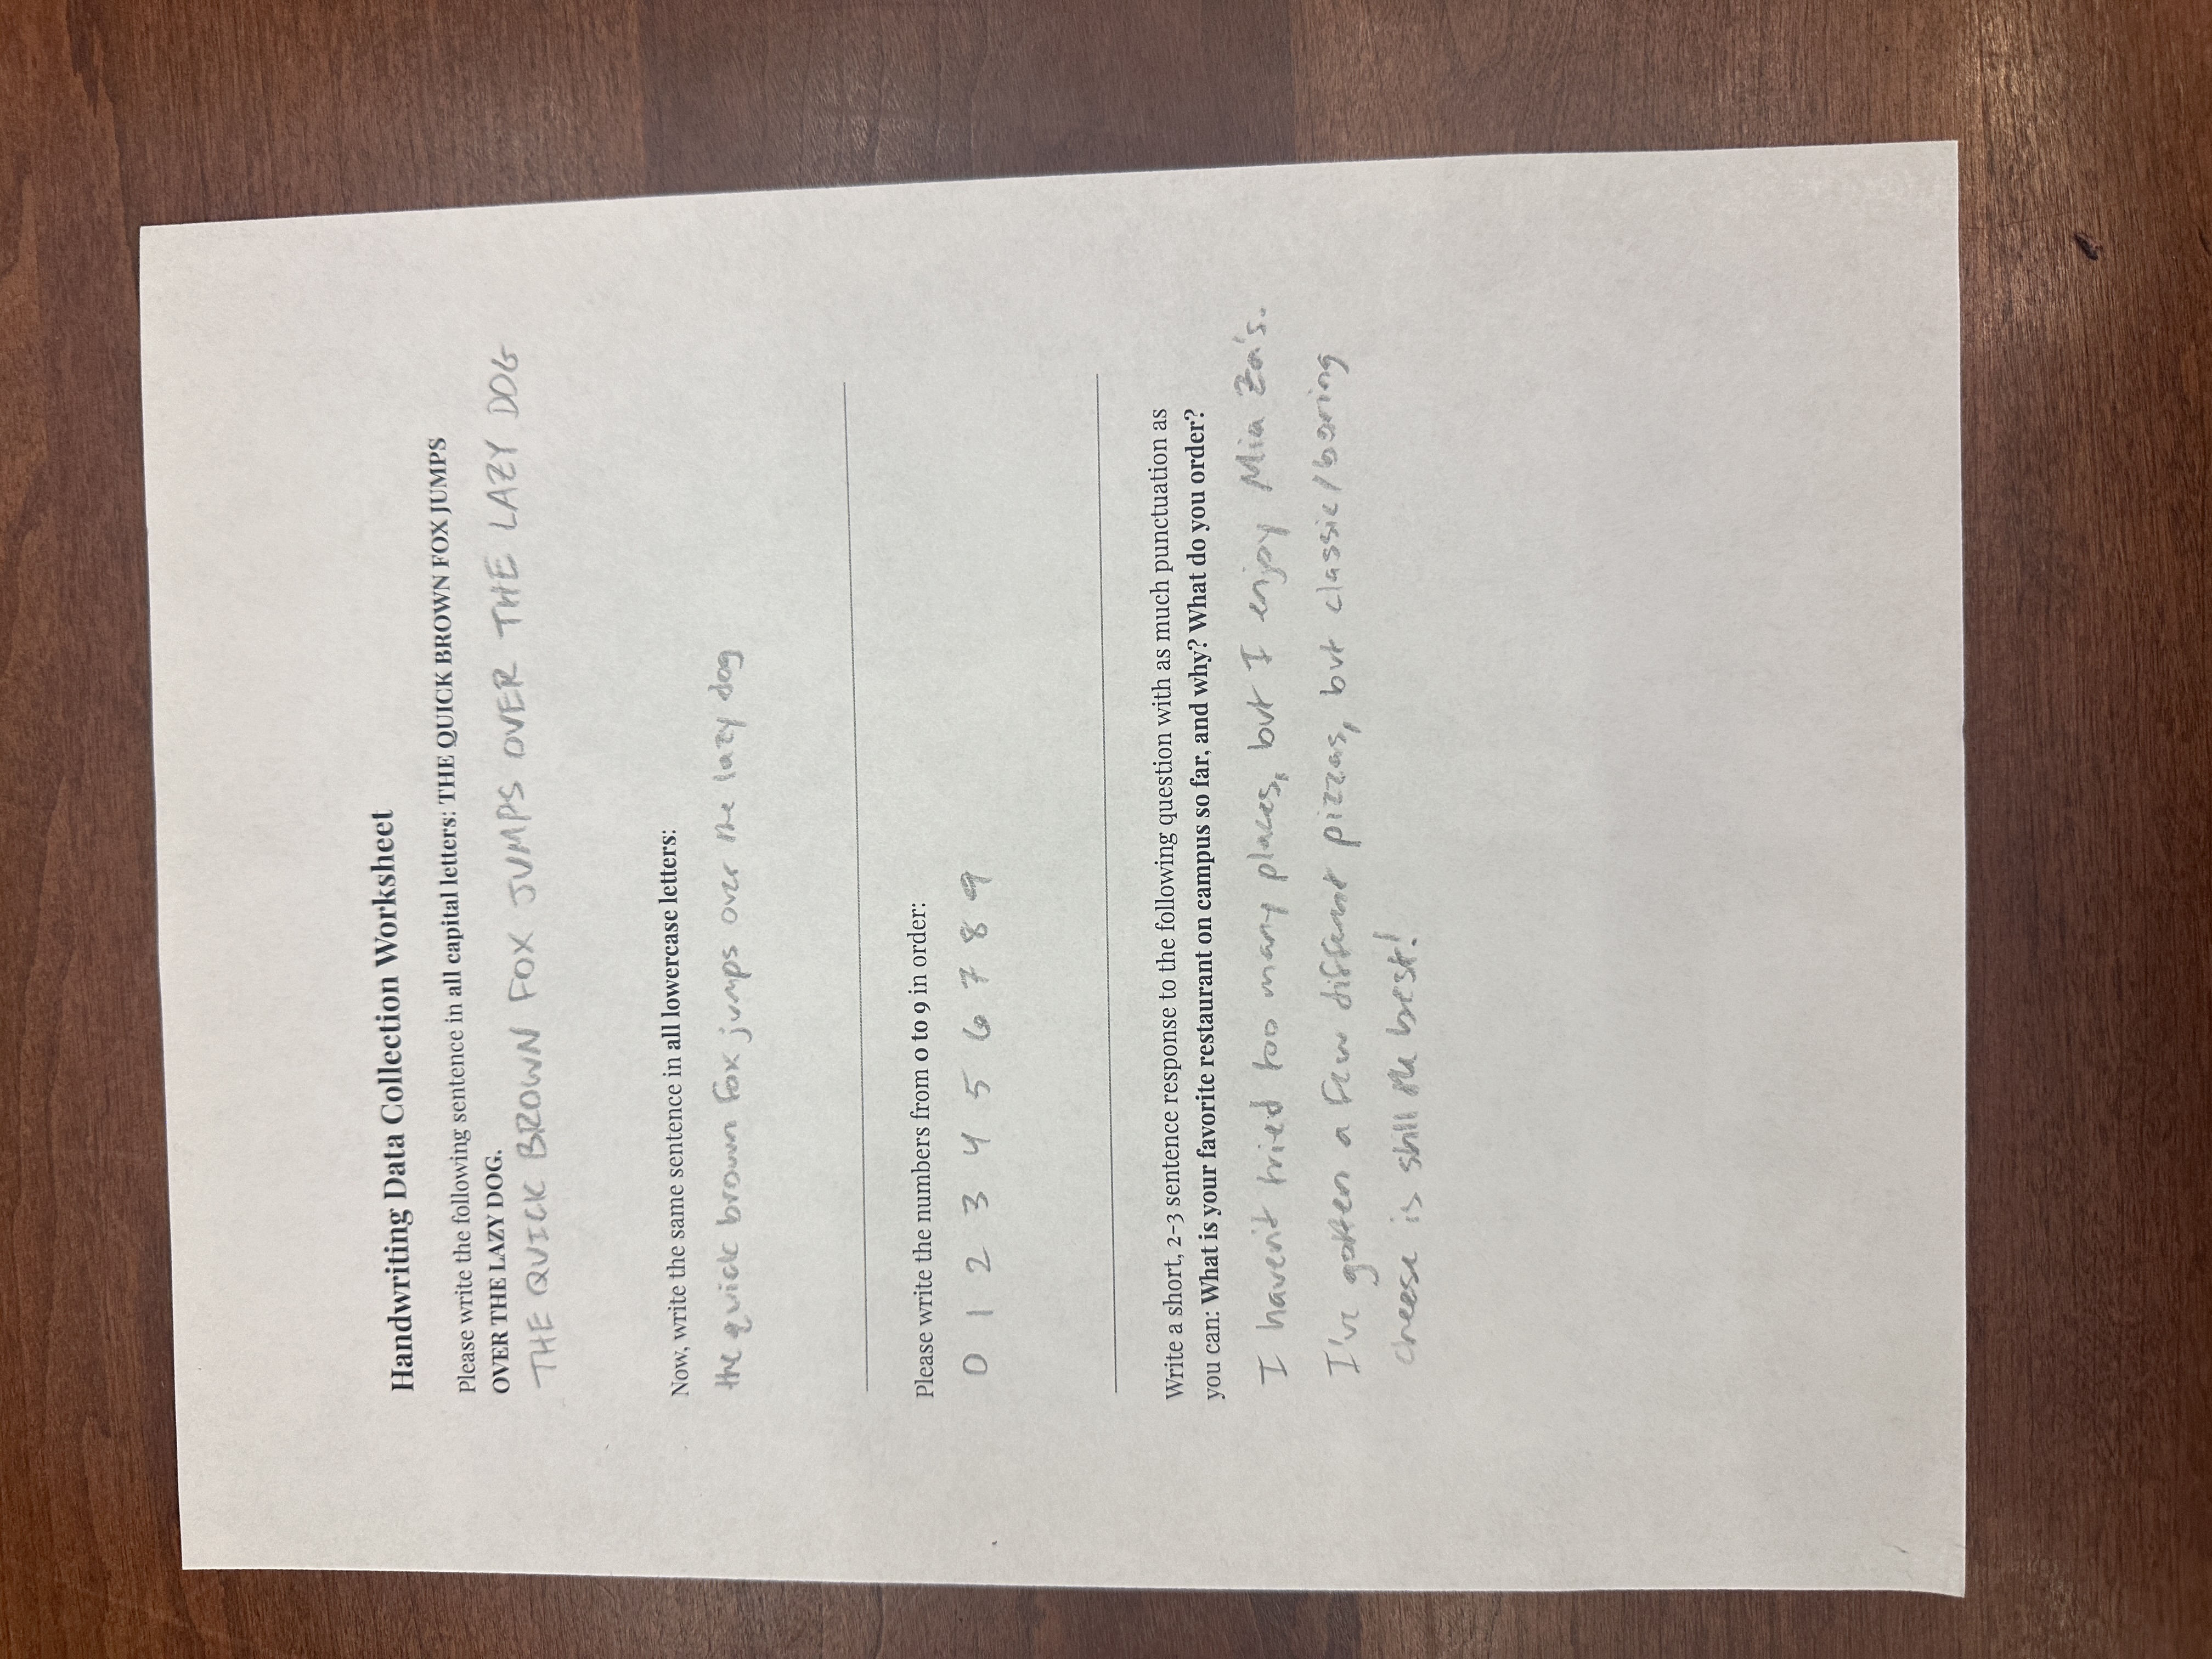 Handwriting Data Collection Worksheet
Please write the following sentence in all capital letters: THE QUICK BROWN FOX JUMPS
OVER THE LAZY DOG.
THE QUICK BROWN FOX JUMPS OVER THE LAZY DOG
Now, write the same sentence in all lowercase letters:
the quick brown fox jumps over the lazy dog
Please write the numbers from 0 to 9 in order:
0 1 2 3 4 5 6 7 8 9
Write a short, 2-3 sentence response to the following question with as much punctuation as
you can: What is your favorite restaurant on campus so far, and why? What do you order?
I haven't tried too many places, but I enjoy Mia Za's.
I've gotten a few different pizzas, but classic/boring
cheese is still the best!